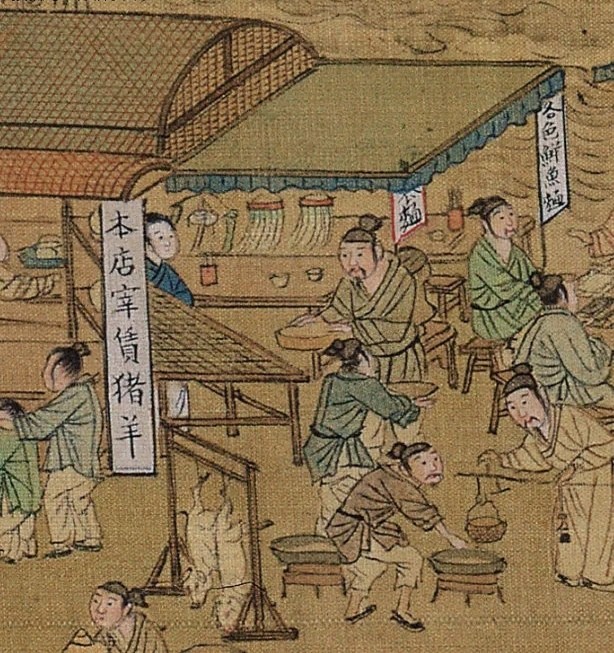 各色鮮魚麵
麵
本店宰賃猪羊